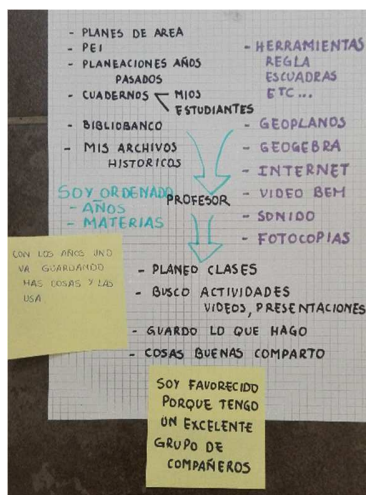 - PLANES DE AREA
- PEI
- PLANEACIONES AÑOS
PASADOS
- CUADERNOS
MIOS
ESTUDIANTES
- BIBLIOBANCO
- MIS ARCHIVOS
HISTORICOS
- HERRAMIENTAS
REGLA
ESCUADRAS
ETC...
- GEOPLANOS
- GEOGEBRA
- INTERNET
- VIDEO BEM
- SONIDO
- FOTOCOPIAS
SOY ORDENADO
- AÑOS
- MATERIAS
PROFESOR
CON LOS AÑOS UNO
VA GUARDANDO
MAS COSAS Y LAS
USA
- PLANEO CLASES
- BUSCO ACTIVIDADES
VIDEOS, PRESENTACIONES
- GUARDO LO QUE HAGO
- COSAS BUENAS COMPARTO
SOY FAVORECIDO
PORQUE TENGO
UN EXCELENTE
GRUPO DE
COMPAÑEROS